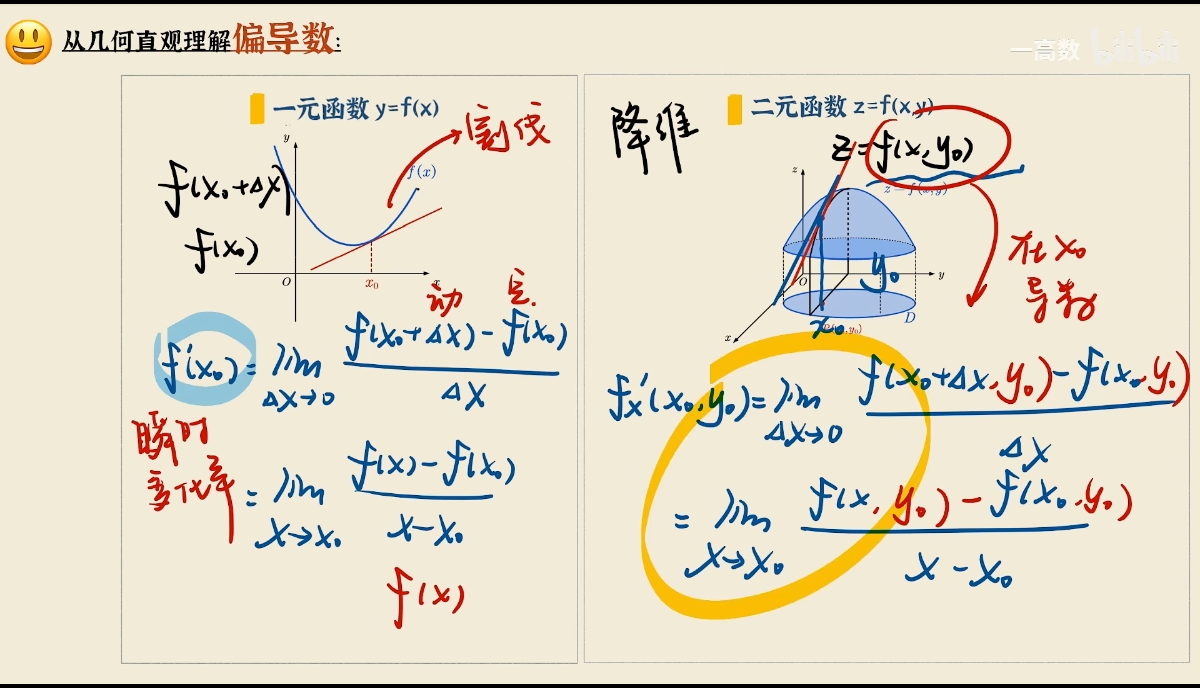 从几何直观理解偏导数:
一高数 bilibili
一元函数 y=f(x)
割线
y
f(x)
f(x₀+Δx)
f(x₀)
O
x₀
x
动 定
f'(x₀) = lim Δx→0 (f(x₀+Δx) - f(x₀)) / Δx
瞬时
变化率
= lim x→x₀ (f(x) - f(x₀)) / (x - x₀)
f(x)
降维
二元函数 z=f(x,y)
z=f(x,y₀)
z
z=f(x,y)
在x₀
导数
y₀
O
y
x₀
D
x
f'x(x₀,y₀) = lim Δx→0 (f(x₀+Δx,y₀) - f(x₀,y₀)) / Δx
= lim x→x₀ (f(x,y₀) - f(x₀,y₀)) / (x - x₀)